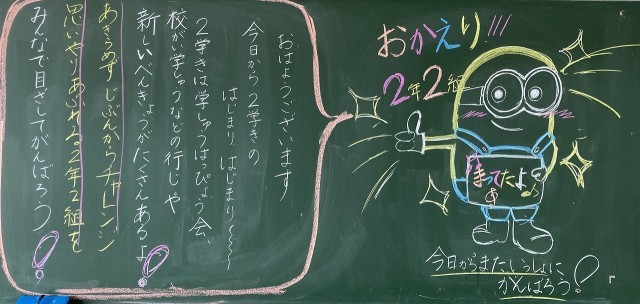 おはようございます
今日から2学きの
はじまり、はじまり〜〜〜
2学きは学しゅうはっぴょう会、
校がい学しゅうなどの行じや
新しいべんきょうがたくさんあるよ!
あきらめず じぶんからチャレンジ
思いやりあふれる2年2組を
みんなで目ざしてがんばろう!
おかえり!!!
2年2組
待ってたよ♪
今日からまたいっしょに
がんばろう!